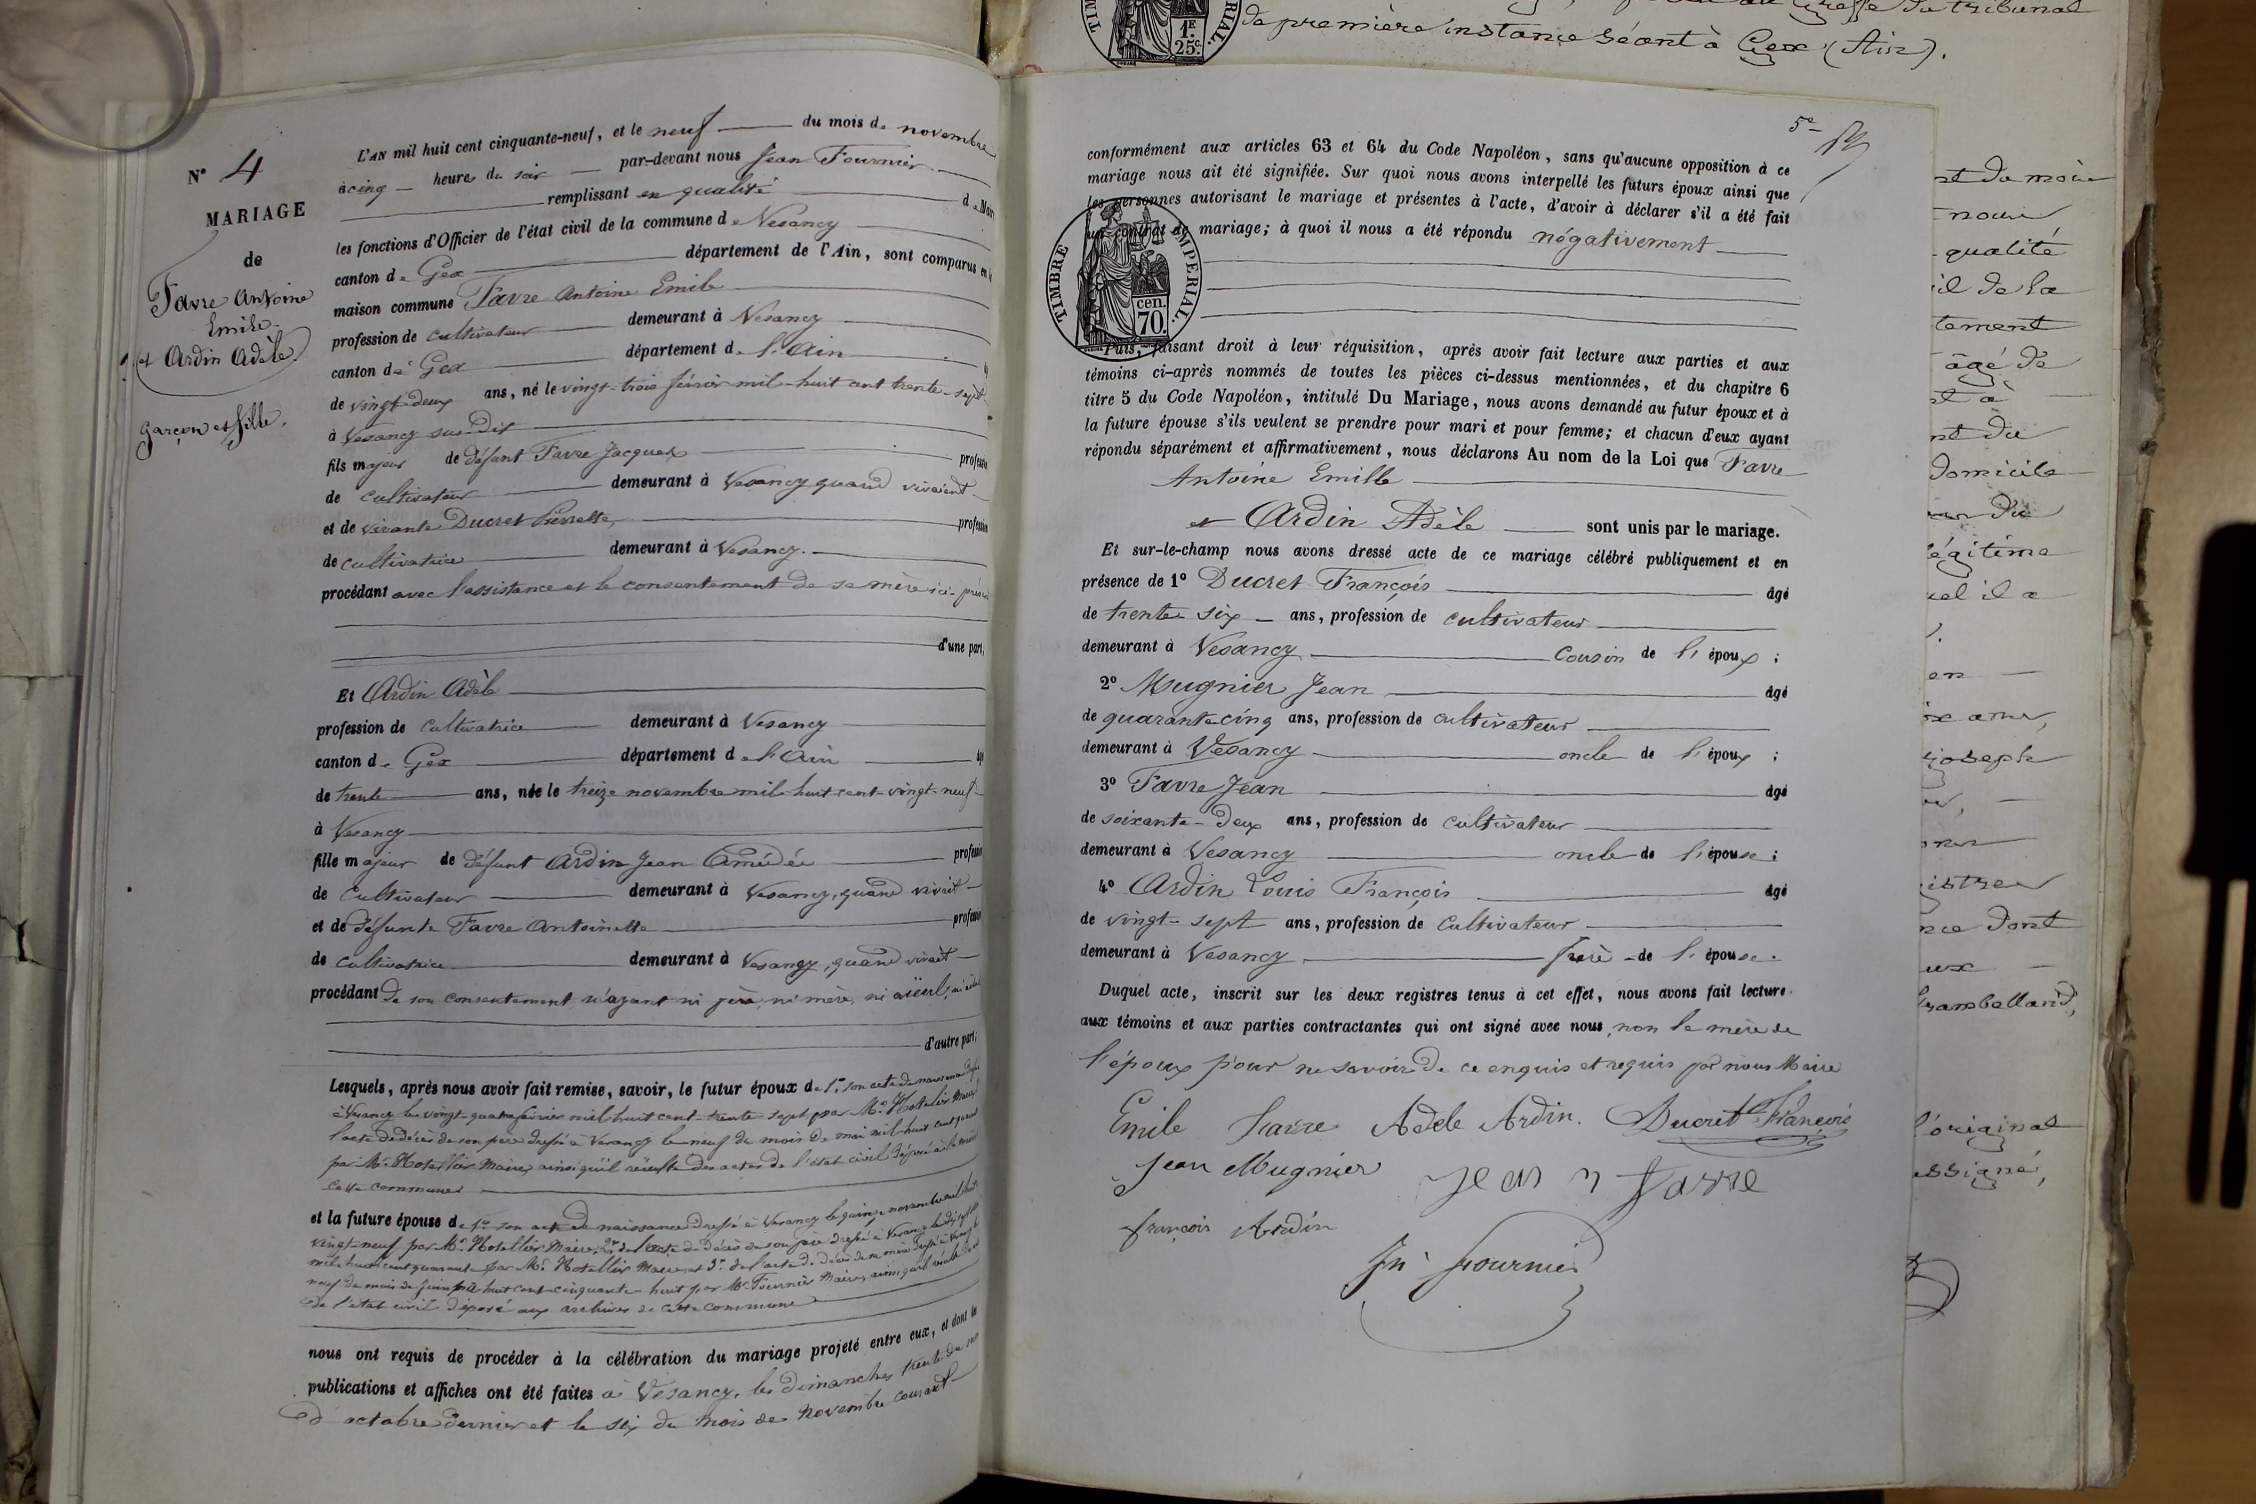 N° 4
MARIAGE
de
Favre Antoine
Emile
et Ardin Adèle
garçon et fille.
L'AN mil huit cent cinquante-neuf, et le neuf du mois de novembre
à cinq heures du soir par-devant nous Jean Fournier
remplissant en qualité de Maire
les fonctions d'Officier de l'état civil de la commune de Vesancy
canton de Gex département de l'Ain, sont comparus en la
maison commune Favre Antoine Emile
profession de cultivateur demeurant à Vesancy
canton de Gex département de l'Ain
de vingt-deux ans, né le vingt-trois février mil-huit cent trente-sept
à Vesancy sus-dit
fils majeur de défunt Favre Jacques profession
de cultivateur demeurant à Vesancy quand vivait
et de vivante Ducret Pierrette, profession
de cultivatrice demeurant à Vesancy.
procédant avec l'assistance et le consentement de sa mère ici-
d'une part,
Et Ardin Adèle
profession de cultivatrice demeurant à Vesancy
canton de Gex département de l'Ain
de trente ans, née le treize novembre mil-huit-cent-vingt-neuf
à Vesancy
fille majeur de défunt Ardin Jean Amédée profession
de Cultivateur demeurant à Vesancy, quand vivait
et de défunte Favre Antoinette profession
de cultivatrice demeurant à Vesancy, quand vivait
procédant de son consentement n'ayant ni père, ni mère, ni aïeul,
d'autre part;
Lesquels, après nous avoir fait remise, savoir, le futur époux de 1° son acte de naissance dressé
à Vesancy le vingt-quatre février mil huit cent-trente-sept par Mr. Hotellier Maire
l'acte de décès de son père dressé à Vesancy le neuf du mois de mai mil-huit cent
par Mr. Hotellier Maire, ainsi qu'il résulte des actes de l'état civil déposé à la
cette commune
et la future épouse de 1° son acte de naissance dressé à Vesancy le quinze novembre mil huit
vingt-neuf par Mr. Hotellier Maire, 2° de l'acte de décès de son père dressé à Vesancy le
mil huit cent quarante par Mr. Hotellier Maire et 3° de l'acte de décès de sa mère dressé à
neuf du mois de Juin mil huit cent cinquante-huit par Mr. Fournier Maire, ainsi qu'il résulte
de l'état civil déposé aux archives de cette commune
nous ont requis de procéder à la célébration du mariage projeté entre eux, et dont les
publications et affiches ont été faites à Vesancy, les dimanches trente du mois
d'octobre dernier et le six du mois de Novembre courant
1E
25c.
de première instance séant à Gex (Ain).
5e
conformément aux articles 63 et 64 du Code Napoléon, sans qu'aucune opposition à ce
mariage nous ait été signifiée. Sur quoi nous avons interpellé les futurs époux ainsi que
les personnes autorisant le mariage et présentes à l'acte, d'avoir à déclarer s'il a été fait
un contrat de mariage; à quoi il nous a été répondu négativement
TIMBRE IMPERIAL.
cen.
70.
Puis, faisant droit à leur réquisition, après avoir fait lecture aux parties et aux
témoins ci-après nommés de toutes les pièces ci-dessus mentionnées, et du chapitre 6
titre 5 du Code Napoléon, intitulé Du Mariage, nous avons demandé au futur époux et à
la future épouse s'ils veulent se prendre pour mari et pour femme; et chacun d'eux ayant
répondu séparément et affirmativement, nous déclarons Au nom de la Loi que Favre
Antoine Emille
et Ardin Adèle sont unis par le mariage.
Et sur-le-champ nous avons dressé acte de ce mariage célébré publiquement et en
présence de 1° Ducret François âgé
de trente six ans, profession de cultivateur
demeurant à Vesancy Cousin de l'époux;
2° Mugnier Jean âgé
de quarante cinq ans, profession de cultivateur
demeurant à Vesancy oncle de l'époux;
3° Favre Jean âgé
de soixante-deux ans, profession de cultivateur
demeurant à Vesancy oncle de l'épouse;
4° Ardin Louis François âgé
de vingt-sept ans, profession de cultivateur
demeurant à Vesancy frère de l'épouse.
Duquel acte, inscrit sur les deux registres tenus à cet effet, nous avons fait lecture
aux témoins et aux parties contractantes qui ont signé avec nous, non la mère de
l'époux pour ne savoir de ce enquis et requis par nous Maire
Emile Favre Adele Ardin. Ducret François
Jean Mugnier Jean Favre
françois Ardin
Jn Fournier
qualité
âgé de
domicile
égitime
joseph
l'original